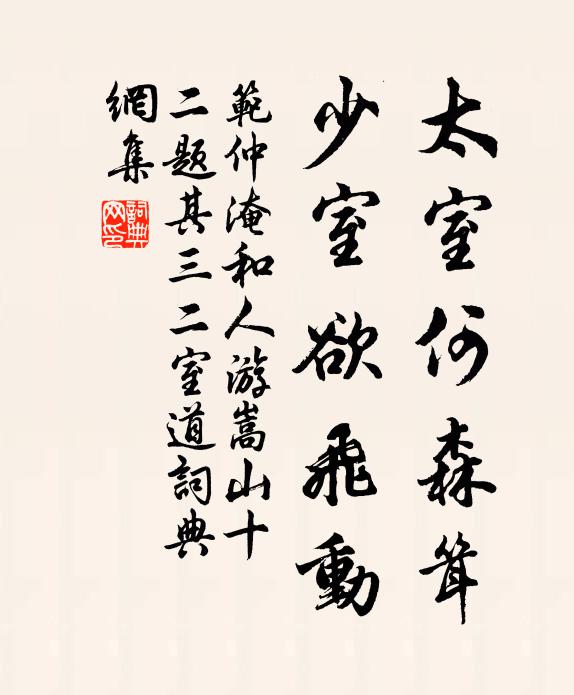 太室何森耸
少室欲飛動
範仲淹和人游嵩山十
二題其三二室道詞典
網集
詞典
网印